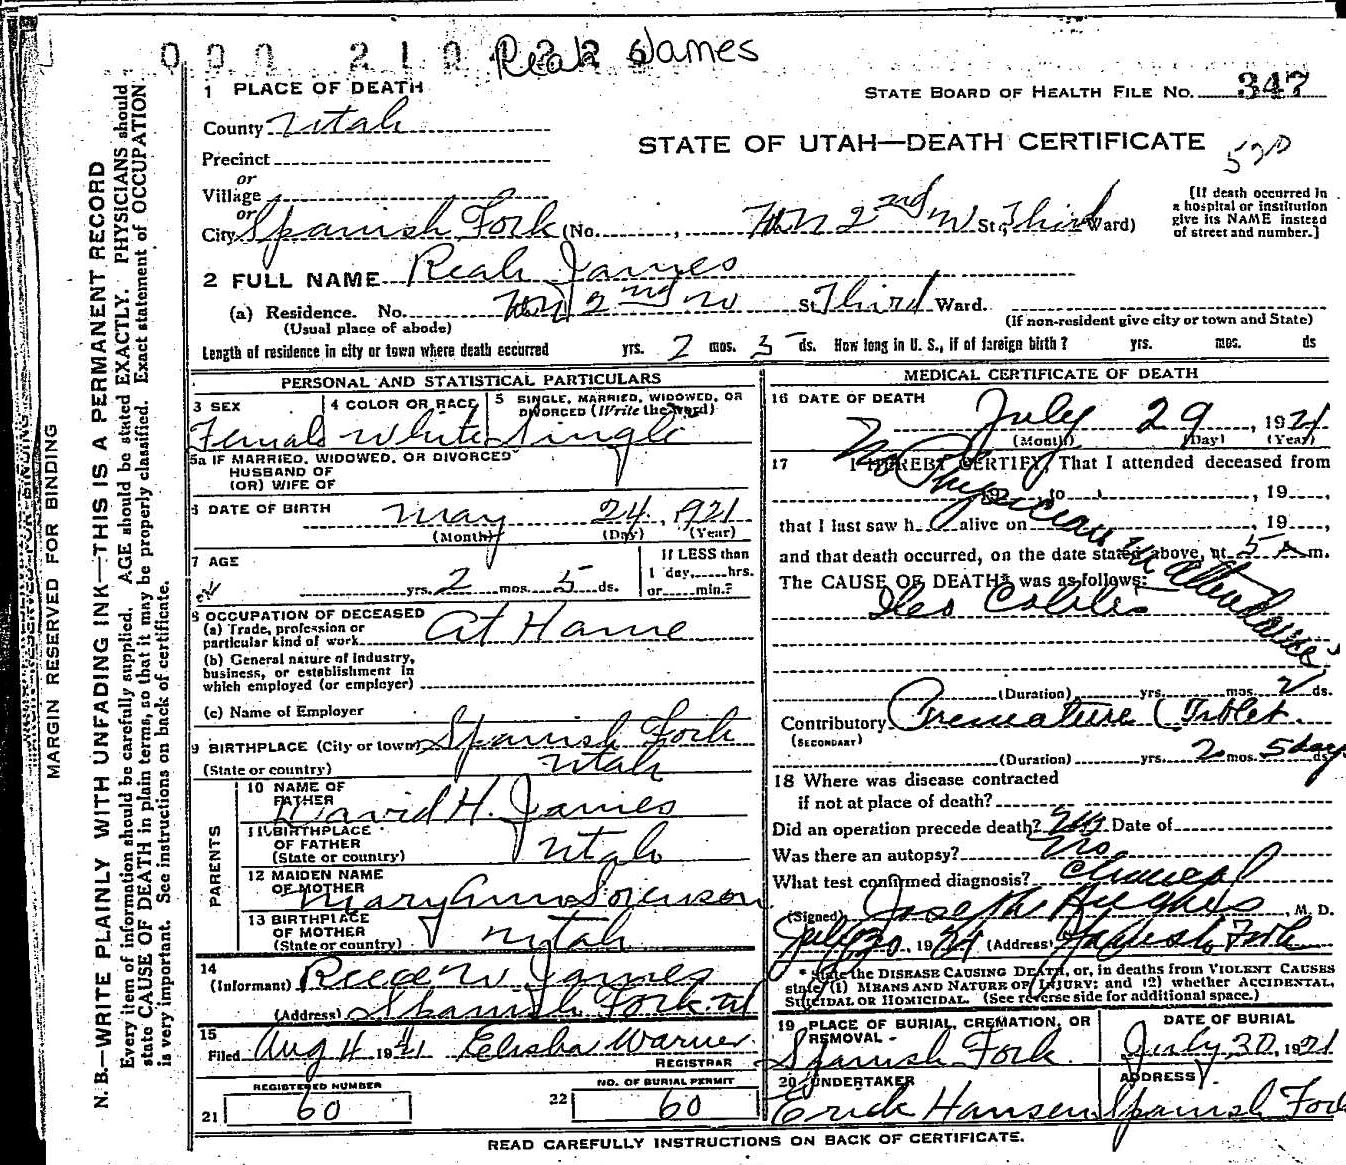 000 210 226 Reah James
1 PLACE OF DEATH
STATE BOARD OF HEALTH FILE NO. 347
County Utah
STATE OF UTAH—DEATH CERTIFICATE
Precinct
or
Village
or
City Spanish Fork (No. , 2nd W St; Third Ward)
(If death occurred in
a hospital or institution
give its NAME instead
of street and number.)
2 FULL NAME Reah James
(a) Residence. No. 2nd W St. Third Ward.
(Usual place of abode)
(If non-resident give city or town and State)
Length of residence in city or town where death occurred yrs. 2 mos. 5 ds. How long in U. S., if of foreign birth? yrs. mos. ds
PERSONAL AND STATISTICAL PARTICULARS
3 SEX
Female
4 COLOR OR RACE
White
5 SINGLE, MARRIED, WIDOWED, OR
DIVORCED (Write the word)
Single
5a IF MARRIED, WIDOWED, OR DIVORCED
HUSBAND OF
(OR) WIFE OF
6 DATE OF BIRTH May 24, 1921
(Month) (Day) (Year)
7 AGE
yrs. 2 mos. 5 ds.
If LESS than
1 day,......hrs.
or......min.?
8 OCCUPATION OF DECEASED
(a) Trade, profession or
particular kind of work At Home
(b) General nature of Industry,
business, or establishment in
which employed (or employer)
(c) Name of Employer
9 BIRTHPLACE (City or town) Spanish Fork
(State or country) Utah
PARENTS
10 NAME OF
FATHER
David H. James
11 BIRTHPLACE
OF FATHER
(State or country) Utah
12 MAIDEN NAME
OF MOTHER
Mary Ann Sorenson
13 BIRTHPLACE
OF MOTHER
(State or country) Utah
14
(Informant) Reece W James
(Address) Spanish Fork ut
15
Filed Aug 4 1921 Elisha Warner
REGISTRAR
REGISTERED NUMBER
21 60
NO. OF BURIAL PERMIT
22 60
MEDICAL CERTIFICATE OF DEATH
16 DATE OF DEATH
July 29, 1921
(Month) (Day) (Year)
17 I HEREBY CERTIFY, That I attended deceased from
No Physician in attendance
192 , to , 19 ,
that I last saw h alive on , 19 ,
and that death occurred, on the date stated above, at 5 A m.
The CAUSE OF DEATH* was as follows:
Ileo Colitis
(Duration) yrs. mos. 2 ds.
Contributory Premature (Triblet.
(SECONDARY)
(Duration) yrs. 2 mos. 5 days ds
18 Where was disease contracted
if not at place of death?
Did an operation precede death? No Date of
Was there an autopsy? No
What test confirmed diagnosis? Clinical
(Signed) Joseph Hughes, M. D.
July 30, 1921 (Address) Spanish Fork
* State the DISEASE CAUSING DEATH, or, in deaths from VIOLENT CAUSES
state (1) MEANS AND NATURE OF INJURY; and (2) whether ACCIDENTAL,
SUICIDAL OR HOMICIDAL. (See reverse side for additional space.)
19 PLACE OF BURIAL, CREMATION, OR
REMOVAL
Spanish Fork
DATE OF BURIAL
July 30, 1921
20 UNDERTAKER
Erick Hansen
ADDRESS
Spanish Fork
READ CAREFULLY INSTRUCTIONS ON BACK OF CERTIFICATE.
MARGIN RESERVED FOR BINDING
N. B.—WRITE PLAINLY WITH UNFADING INK—THIS IS A PERMANENT RECORD
Every item of information should be carefully supplied. AGE should be stated EXACTLY. PHYSICIANS should
state CAUSE OF DEATH in plain terms, so that it may be properly classified. Exact statement of OCCUPATION
is very important. See instructions on back of certificate.